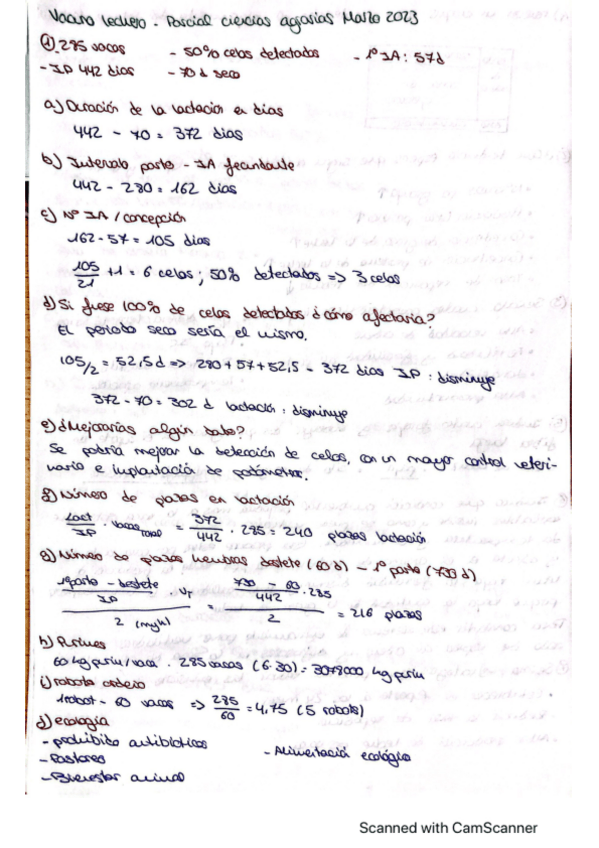 Vacuno lechero - Parcial ciencias agrarias Marzo 2023
① 285 vacas - 50% celos detectados - 1º IA: 57d
- IP 442 dias - 70 d seco
a) Duración de la lactación en días
442 - 70 = 372 dias
b) Intervalo parto - IA fecundante
442 - 280 = 162 dias
c) Nº IA / concepción
162 - 57 = 105 dias
105/21 + 1 = 6 celos ; 50% detectados => 3 celos
d) Si fuese 100% de celos detectados ¿cómo afectaria?
El periodo seco sería el mismo.
105/2 = 52,5 d => 280 + 57 + 52,5 - 372 dias IP : disminuye
372 - 70 = 302 d lactación : disminuye
e) ¿Mejorarías algún dato?
Se podría mejorar la detección de celos, con un mayor control veteri-
nario e implantación de podómetros.
f) Número de plazas en lactación
lact/IP · vacas total = 372/442 · 285 = 240 plazas lactación
g) Número de plazas hembras destete (60 d) - 1º parto (730 d)
1º parto - destete / IP · VT / 2 (m y h) = 730 - 60 / 442 · 285 / 2 = 216 plazas
h) Purines
60 kg purín / vaca · 285 vacas (6·30) = 3078000 kg purín
i) robots ordeño
1 robot - 60 vacas => 285/60 = 4,75 (5 robots)
j) ecología
- prohibido antibióticos - Alimentació ecológica
- Pastoreo
- Bienestar animal
Scanned with CamScanner